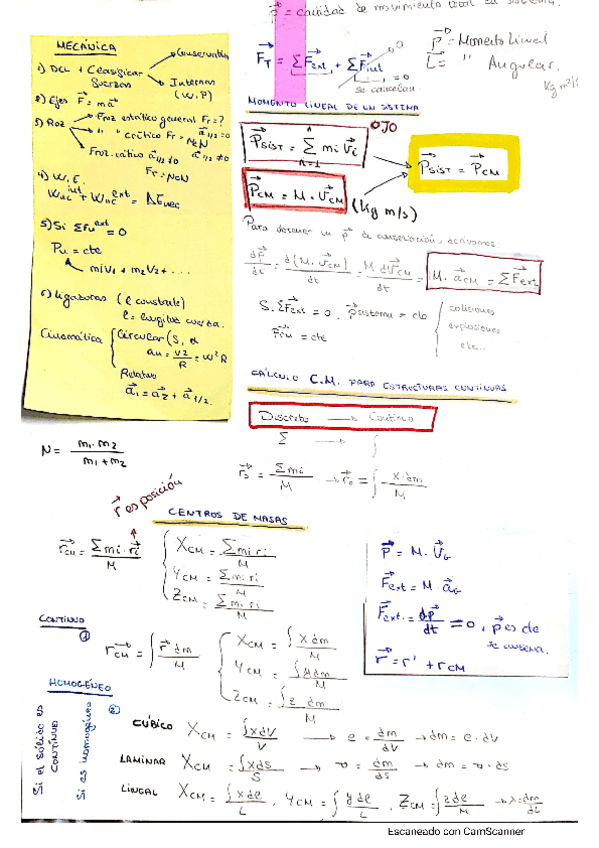 P = cantidad de movimiento total del sistema.
F_T = ΣF_ext + ΣF_int = 0
se cancelan
P = Momento Lineal
L = " Angular.
kg m²/s
MECÁNICA
1) DCL + Clasificar fuerzas
Conservativas
Internas (W, P)
2) Ejes F = ma
3) Roz
Froz estático general Fr = ?
" " crítico Fr = µeN a 1/2 = 0
Froz. cinético a 1/2 ≠ 0 a 1/2 ≠ 0
Fr = µcN
4) W, E.
W_nc^int + W_nc^ext = ΔE_mec
5) Si ΣF^ext = 0
Pu = cte
m1V1 + m2V2 + ...
6) ligaduras (l constante)
l = longitud cuerda.
Cinemática
Circular (S, α
an = V²/R = ω²R
Relativo
a1 = a2 + a1/2.
MOMENTO LINEAL DE UN SISTEMA
P_SIST = Σ mi vi
OJO
P_CM = M · V_CM (Kg m/s)
P_SIST = P_CM
Para obtener un P de conservación, derivamos:
dP/dt = d(M·V_CM)/dt = M dV_CM/dt = M · a_CM = ΣF_ext
S. ΣF_ext = 0, P sistema = cte
= cte
colisiones
explosiones
etc...
CÁLCULO C.M. PARA ESTRUCTURAS CONTINUAS
Discreto → Continuo
Σ → ∫
N = m1·m2 / m1+m2
r es posición
CENTROS DE MASAS
r_CM = Σmi·ri / M
X_CM = Σmi ri / M
Y_CM = Σmi ri / M
Z_CM = Σmi ri / M
P = M · V_G
F_ext = M · a_G
F_ext. = dP/dt = 0, P es cte
se conserva.
r = r' + r_CM
CONTINUO
①
r_CM = ∫ r dm / M
X_CM = ∫ x dm / M
Y_CM = ∫ y dm / M
Z_CM = ∫ z dm / M
HOMOGÉNEO
②
Si el sólido es CONTINUO
Si es homogéneo
CÚBICO X_CM = ∫xdV / V → e = dm/dV → dm = e · dV
LAMINAR X_CM = ∫xds / S → σ = dm/ds → dm = σ · ds
LINEAL X_CM = ∫xdl / L, Y_CM = ∫ydl / L, Z_CM = ∫zdl / M → λ = dm/dL
Escaneado con CamScanner